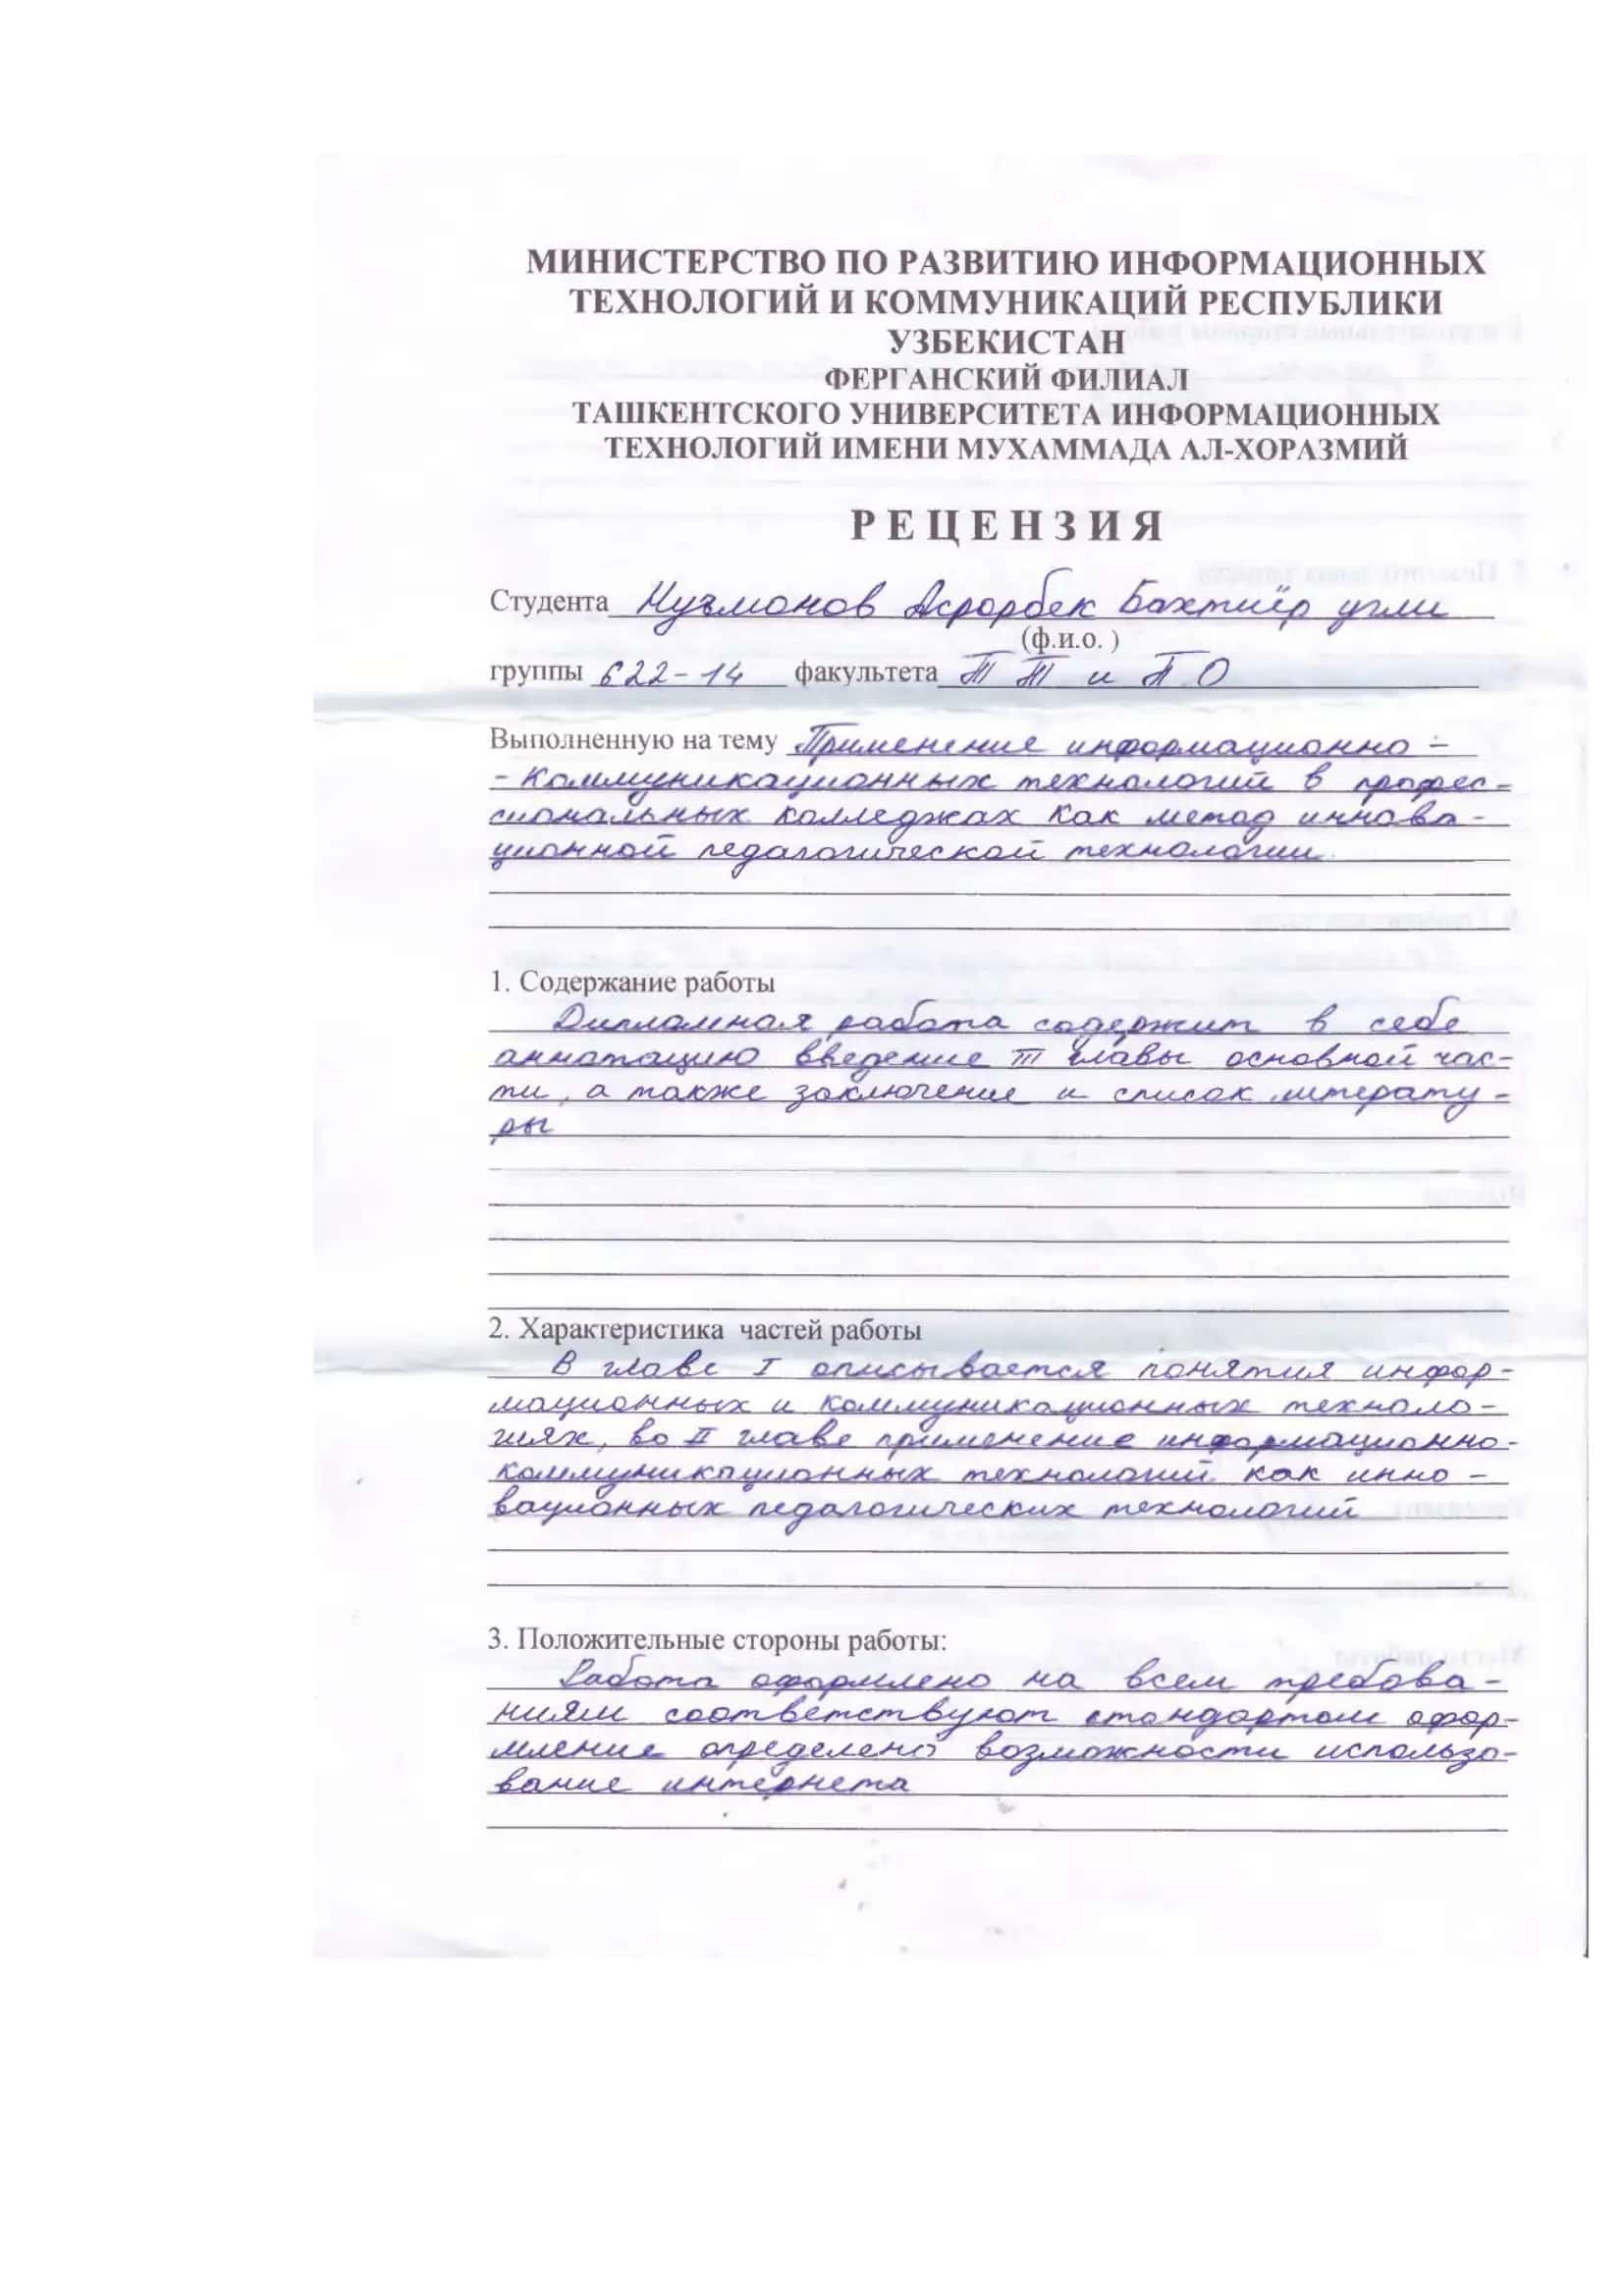 МИНИСТЕРСТВО ПО РАЗВИТИЮ ИНФОРМАЦИОННЫХ
ТЕХНОЛОГИЙ И КОММУНИКАЦИЙ РЕСПУБЛИКИ
УЗБЕКИСТАН
ФЕРГАНСКИЙ ФИЛИАЛ
ТАШКЕНТСКОГО УНИВЕРСИТЕТА ИНФОРМАЦИОННЫХ
ТЕХНОЛОГИЙ ИМЕНИ МУХАММАДА АЛ-ХОРАЗМИЙ
РЕЦЕНЗИЯ
Студента Нуъмонов Асрорбек Бахтиёр угли
(ф.и.о. )
группы 622-14 факультета ТТ и ПО
Выполненную на тему Применение информационно -
- коммуникационных технологий в профес-
сиональных колледжах как метод иннова -
ционной педагогической технологии.
1. Содержание работы
Дипломная работа содержит в себе
аннотацию введение III главы основной час-
ти, а также заключение и список литерату -
ры
2. Характеристика частей работы
В главе I описывается понятия инфор-
мационных и коммуникационных техноло-
гиях, во II главе применение информационно-
коммуникационных технологий как инно -
вационных педагогических технологий
3. Положительные стороны работы:
Работа оформлено на всем требова-
ниям соответствуют стандартом офор-
мление определено возможности использо-
вание интернета